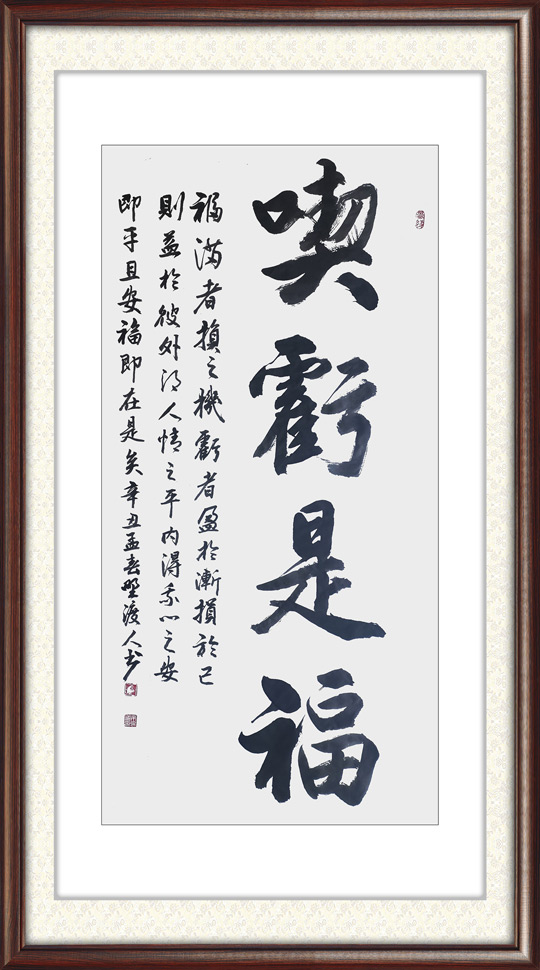 喫虧是福
福滿者損之機虧者盈於漸損於己
則益於彼外得人情之平內得我心之安
即平且安福即在是矣辛丑孟春墅渡人書